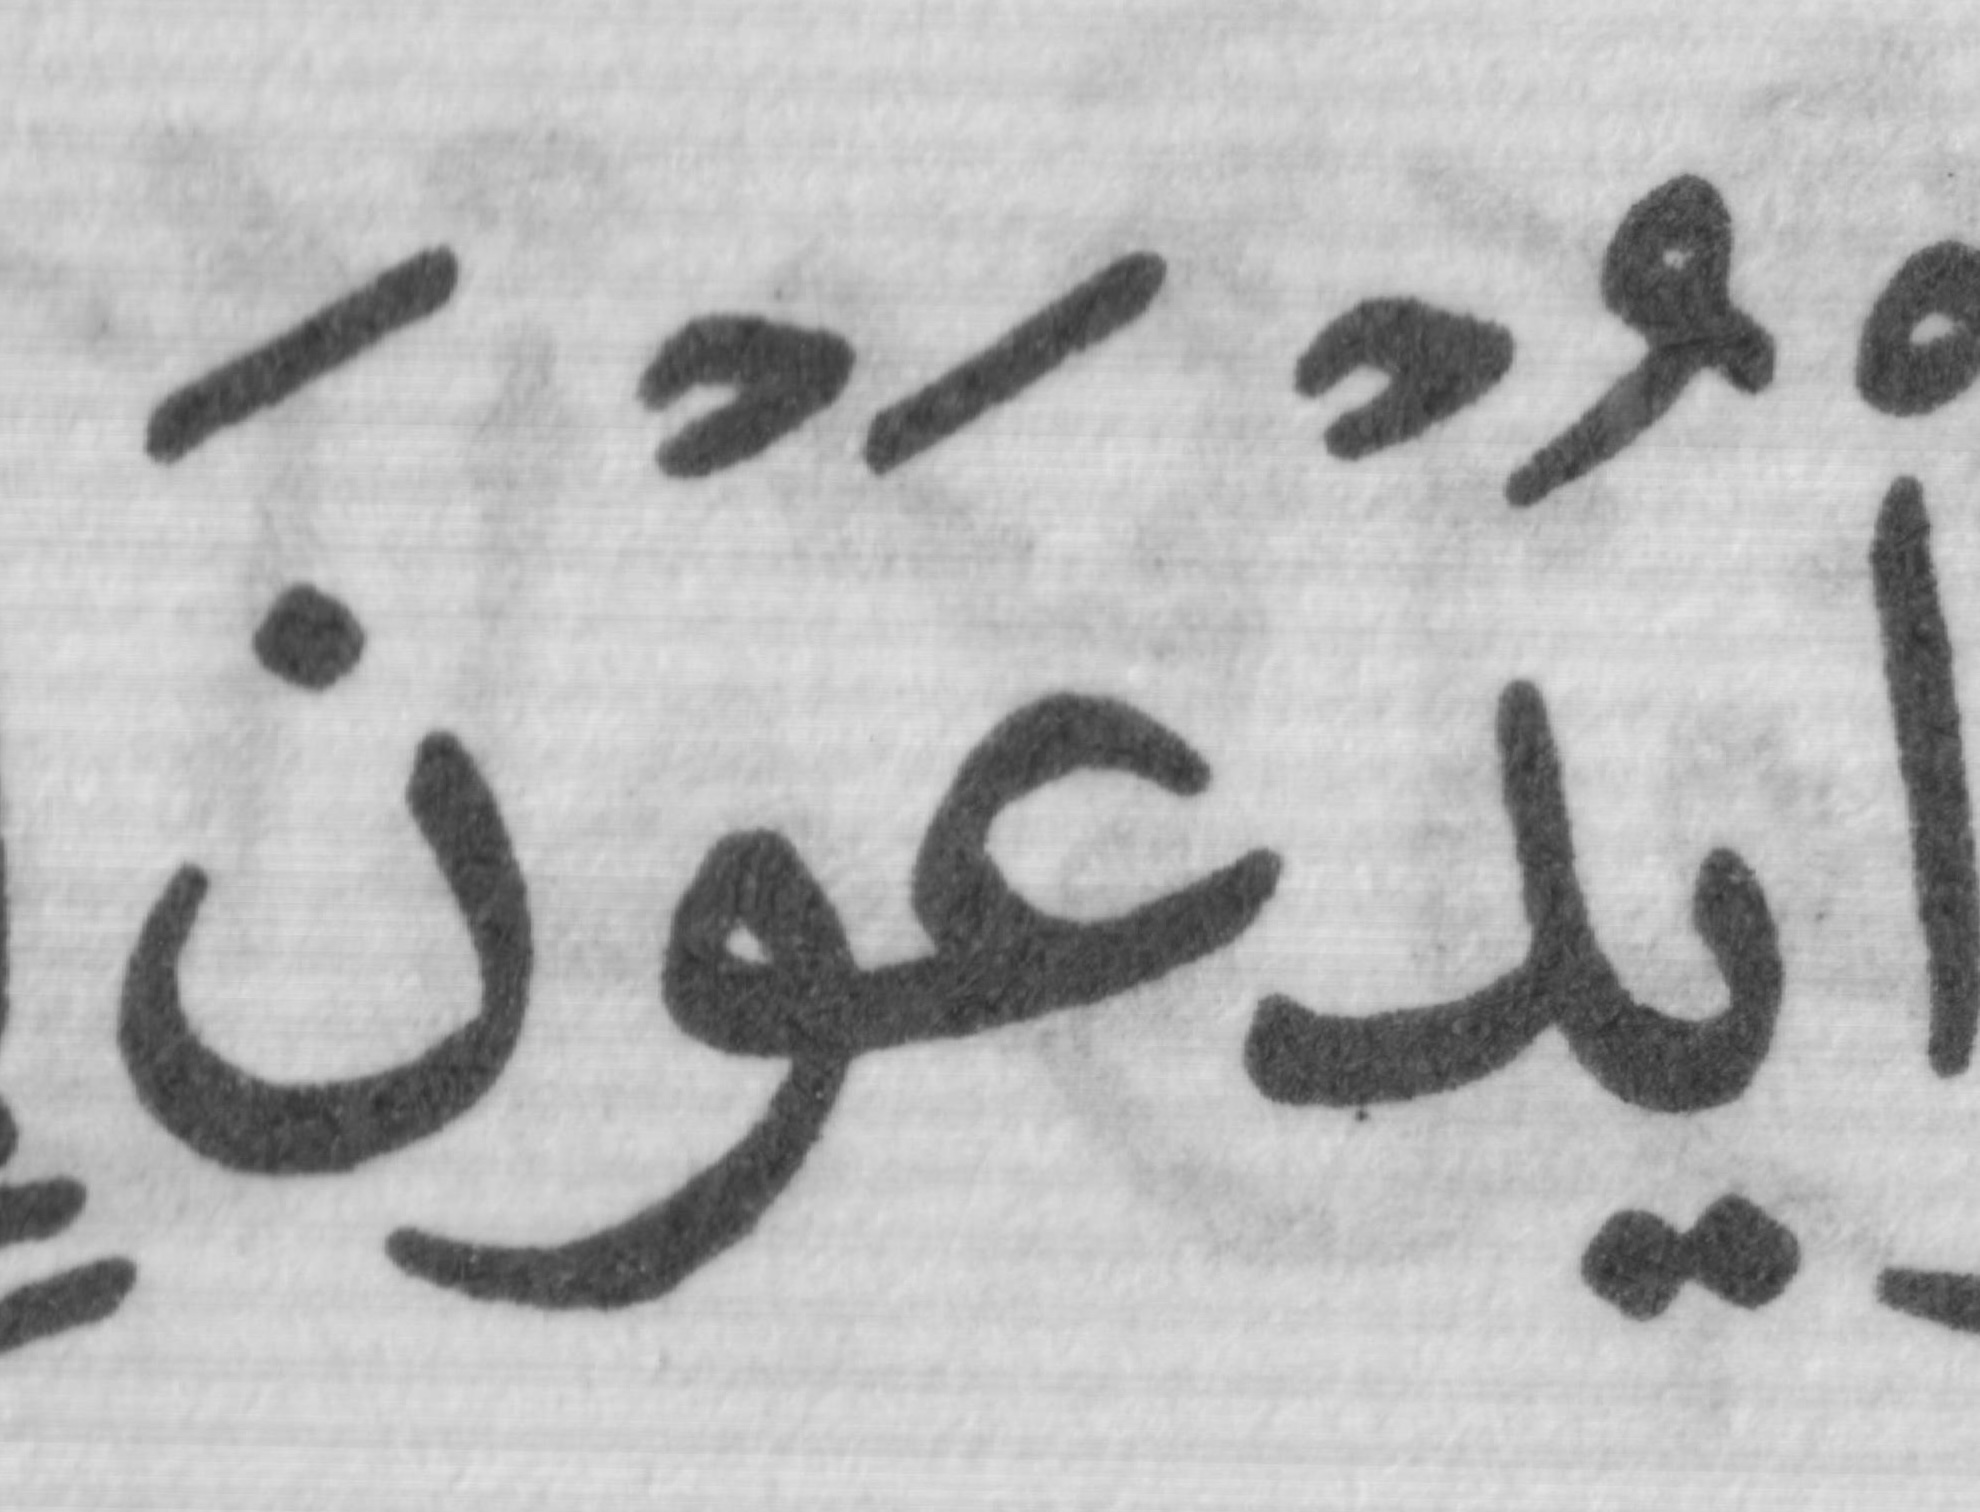 اْ يُدْعَوْنَ